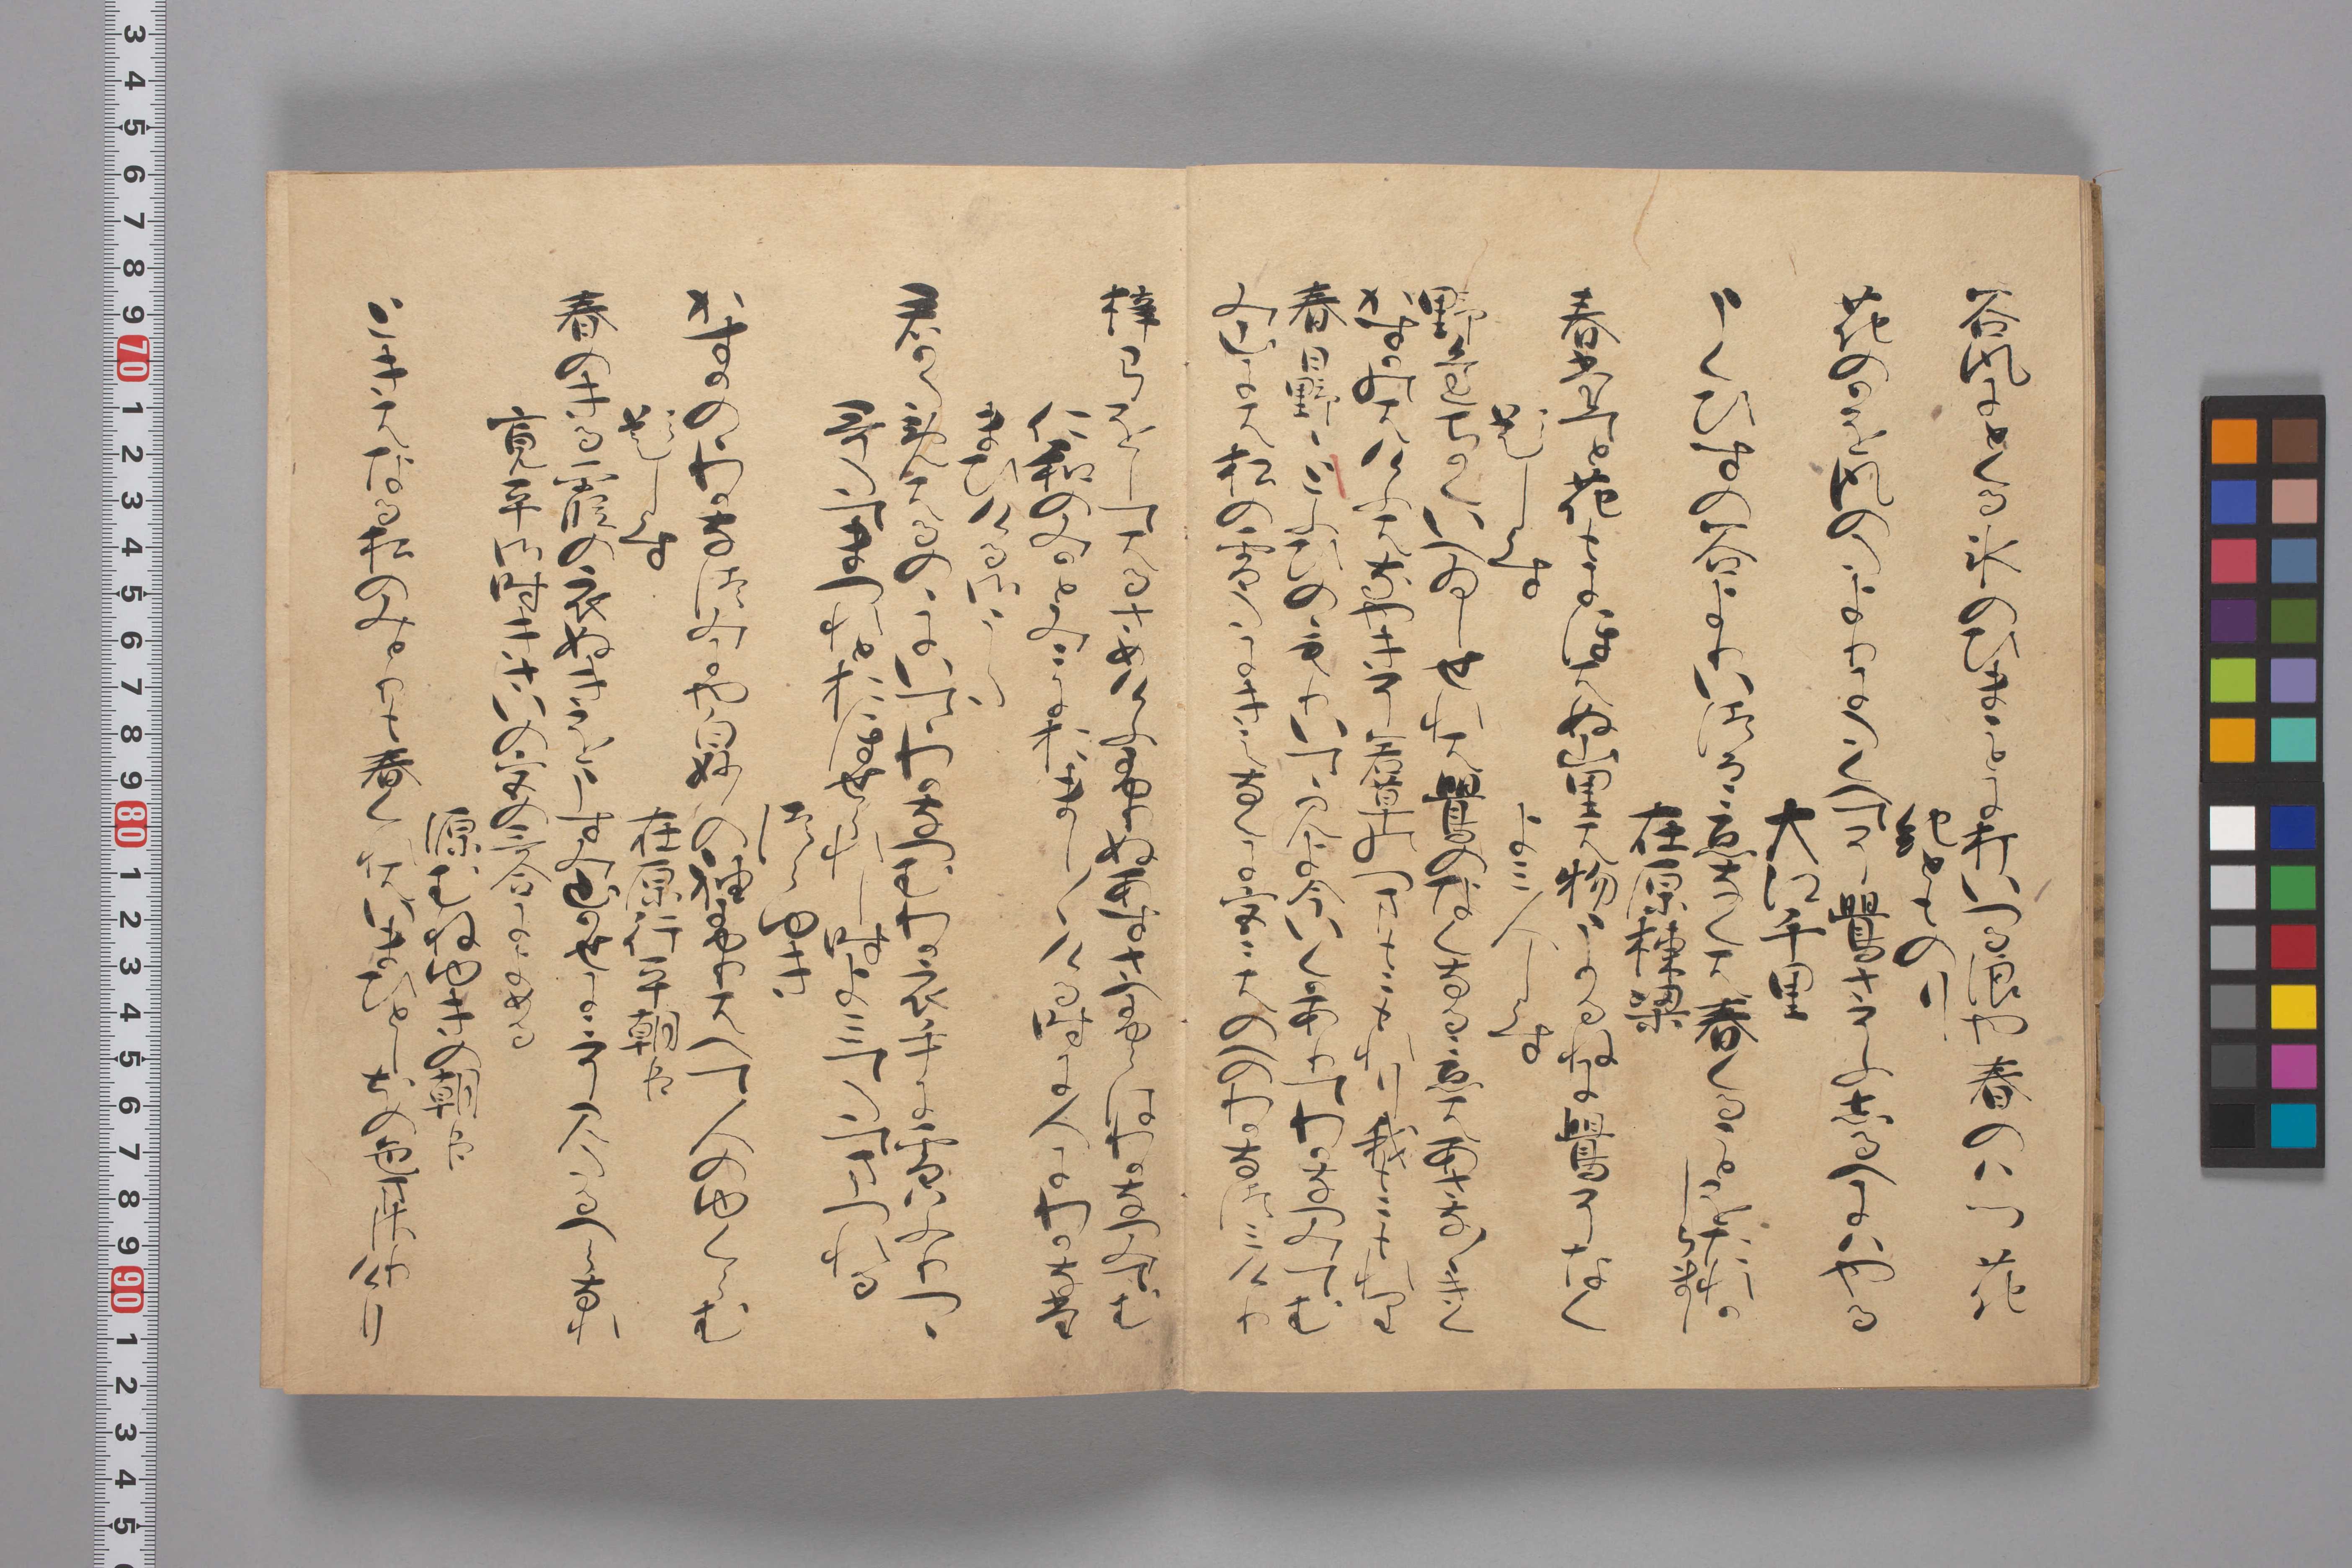 谷風にとくる氷のひまことにうちいつる浪や春のはつ花
紀とものり
花のかを風のたよりにたくへてそ鶯さそふしるへにはやる
大江千里
うくひすの谷よりいつるこゑなくは春くることをたれかしらまし
在原棟梁
春たてと花もにほはぬ山さとは物うかるねに鶯そなく
題しらす よみ人しらす
野辺ちかくいへゐしせれは鶯のなくなるこゑはあさなあさなきく
かすかのはけふはなやきそ若草のつまもこもれり我もこもれり
春日野のとふひのゝもりいてゝ見よ今いくかありてわかなつみてむ
み山には松の雪たにきえなくに宮こはのへのわかなつみけり
梓弓をしてはるさめけふゝりぬあすさへふらはわかなつみてむ
仁和のみかとみこにおましましける時に人にわかな
たまひける御うた
君かため春のゝにいてゝわかなつむわか衣手に雪はふりつゝ
哥たてまつれとおほせられし時よみてたてまつれる
つらゆき
かすかのゝわかなつみにや白妙の袖ふりはへて人のゆくらむ
題しらす 在原行平朝臣
春のきる霞の衣ぬきをうすみ山風にこそみたるへらなれ
寛平御時きさいの宮の哥合によめる
源むねゆきの朝臣
ときはなる松のみとりも春くれは今ひとしほの色まさりけり